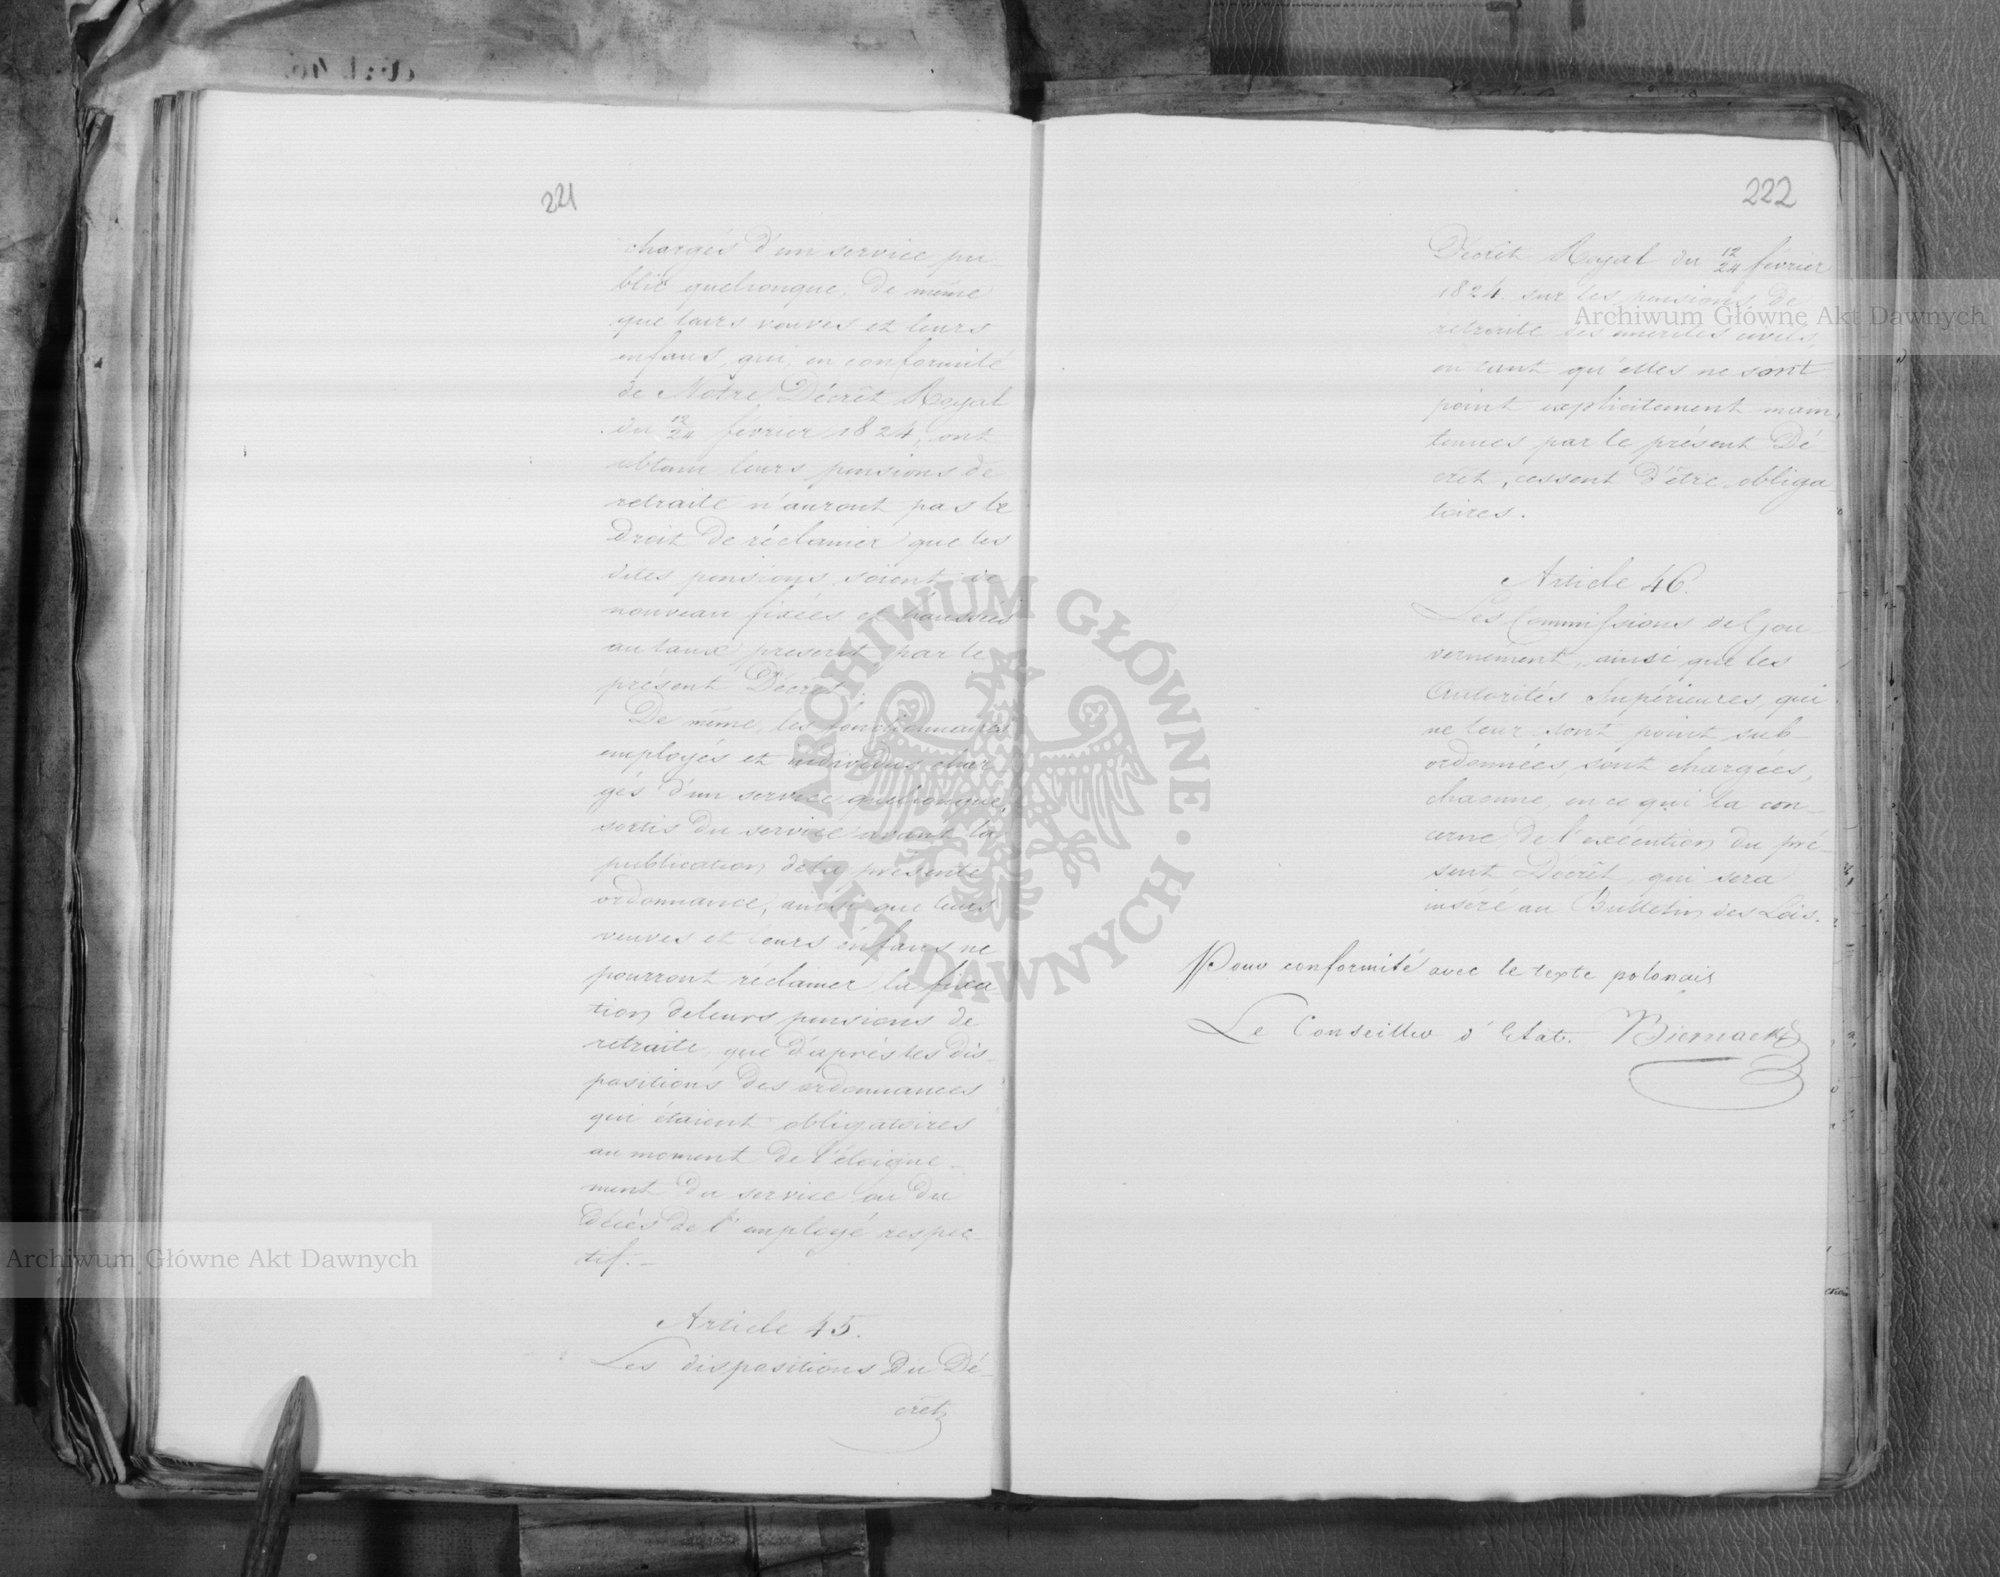 221
chargés d'un service pu
blic quelconque, de même
que leurs veuves et leurs
enfans, qui en conformité
de Notre Décrêt Royal
du 12/24 fevrier 1824, ont
obtenu leurs pensions de
retraite n'auront pas le
droit de réclamer que les
dites pensions soient de
nouveau fixées et haussées
au taux prescrit par le
présent Décret.
De même, les fonctionnaires
employés et individus char
gés d'un service quelconque,
sortis du service avant la
publication de la présente
ordonnance, ainsi que leurs
veuves et leurs enfans ne
pourront réclamer la fixa
tion de leurs pensions de
retraite, que d'après les dis-
positions des ordonnances
qui étaient obligatoires
au moment de l'éloigne-
ment du service ou du
décès de l'employé respec-
tif.-
Article 45.
Les dispositions du Dé-
crêt
222
Décrêt Royal du 12/24 février
1824. sur les pensions de
retraite des émérites civils,
en tant qu'elles ne sont
point explicitement main,
tenues par le présent Dé
crêt, cessent d'être obliga
toires.
Article 46.
Les Commissions de Gou
vernement, ainsi que les
Autorités Supérieures, qui
ne leur sont point sub-
ordonnées, sont chargées,
chacune, en ce qui la con-
cerne, de l'execution du pré-
sent Décrêt, qui sera
inséré au Bulletin des Lois.
Pour conformité avec le texte polonais
Le Conseiller d'Etat. Biernacki
Archiwum Główne Akt Dawnych
ARCHIWUM GŁÓWNE AKT DAWNYCH
Archiwum Główne Akt Dawnych